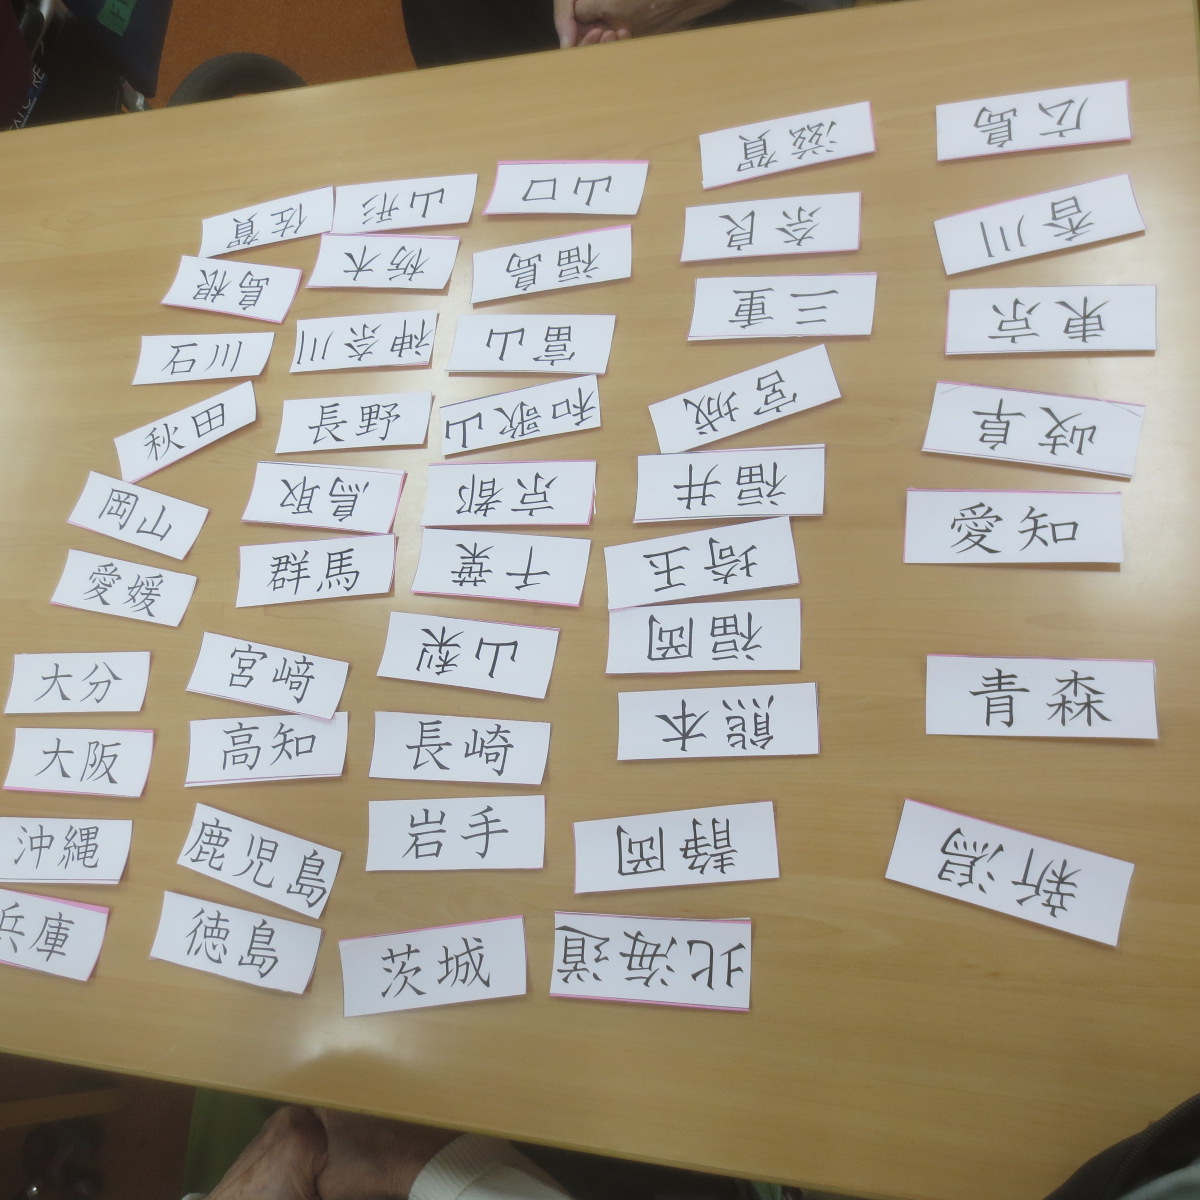 広島
滋賀
山口
山形
佐賀
香川
奈良
福島
栃木
島根
東京
三重
富山
神奈川
石川
岐阜
宮城
和歌山
長野
秋田
愛知
福井
京都
鳥取
岡山
埼玉
千葉
群馬
愛媛
福岡
山梨
宮崎
大分
青森
熊本
長崎
高知
大阪
新潟
静岡
岩手
鹿児島
沖縄
北海道
茨城
徳島
兵庫